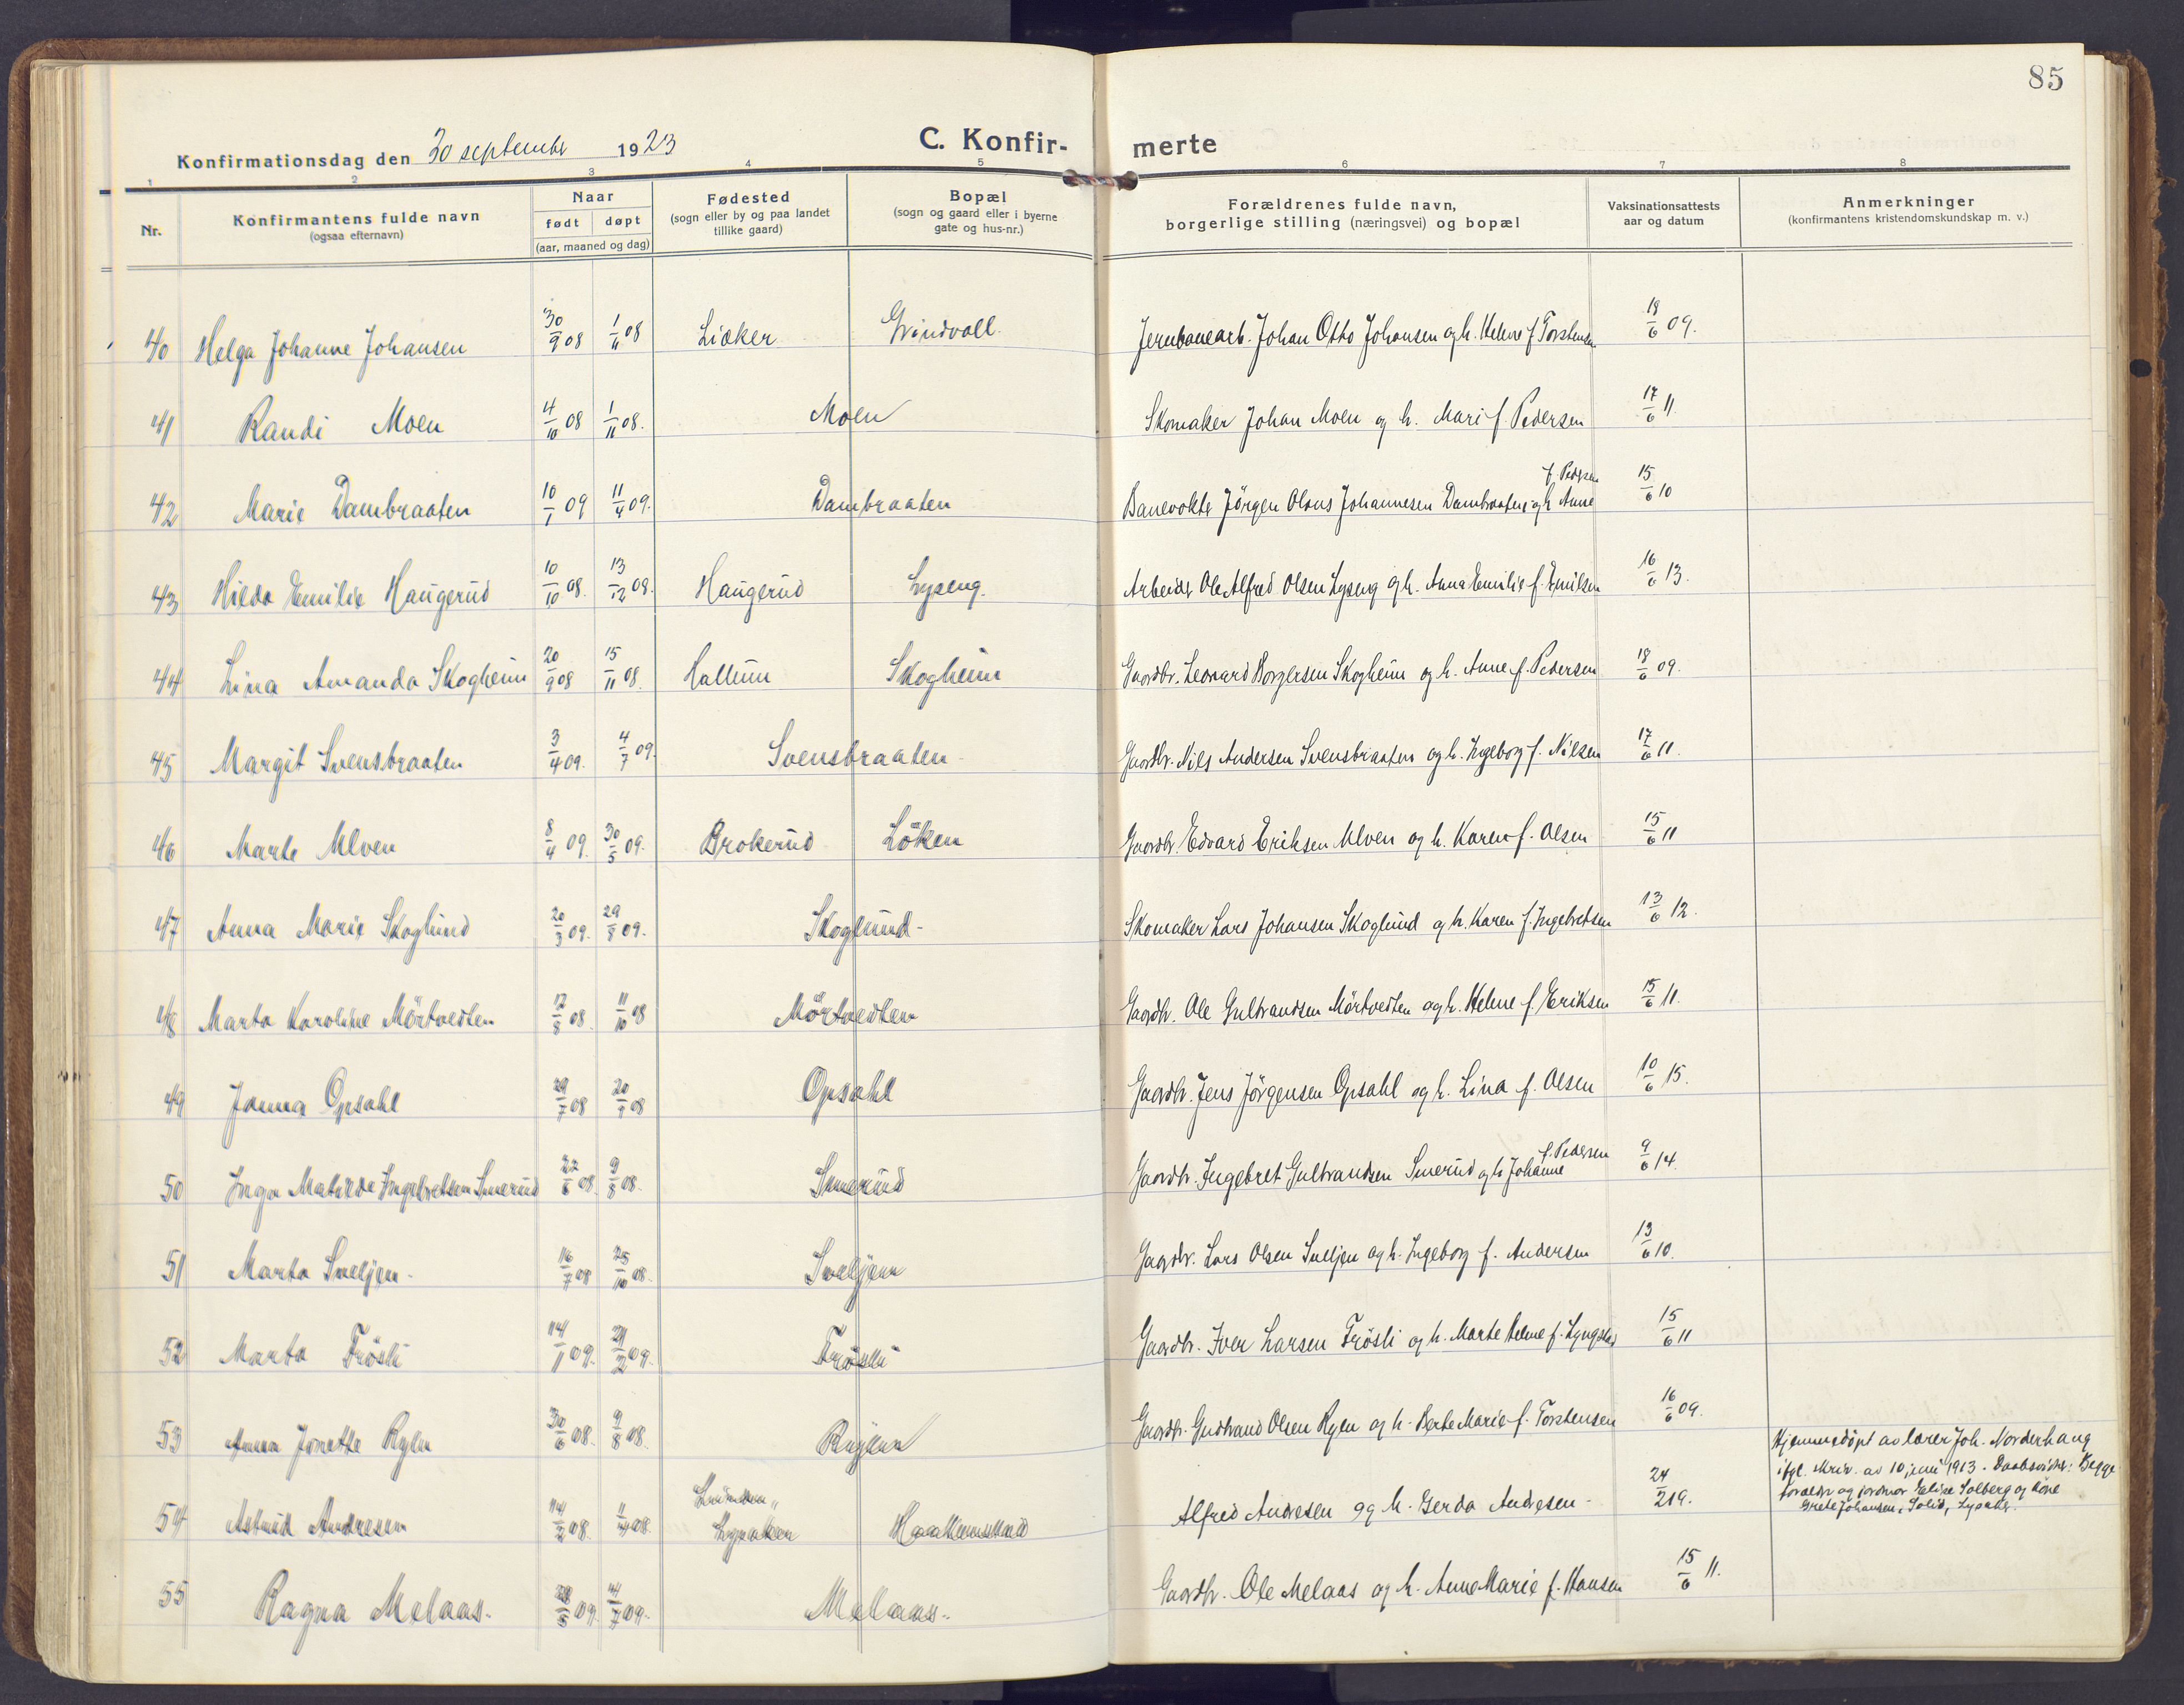 85
Konfirmationsdag den 30 september 1923
C. Konfir- merte
1 2 3 4 5 6 7 8
Nr.
Konfirmantens fulde navn
(ogsaa efternavn)
Naar
født døpt
(aar, maaned og dag)
Fødested
(sogn eller by og paa landet
tillike gaard)
Bopæl
(sogn og gaard eller i byerne
gate og hus-nr.)
Forældrenes fulde navn,
borgerlige stilling (næringsvei) og bopæl
Vaksinationsattests
aar og datum
Anmerkninger
(konfirmantens kristendomskundskap m. v.)
40 Helga Johanne Johansen 30/9 08 1/11 08 Liaker Grindvoll Jernbanearb. Johan Otto Johansen og h. Helene f Torstensen 18/6 09.
41 Randi Moen 4/10 08 1/11 08. Moen Skomaker Johan Moen og h. Mari f. Pedersen 17/6 11.
42 Marie Dambraaten 10/1 09 11/4 09. Dambraaten Banevokter Jörgen Olaus Johannesen Dambraaten og h Anne f. Pedersen 15/6 10
43 Hilda Emilie Haugerud 10/10 08. 13/12 08. Haugerud Lyseng. Arbeider Ole Alfred Olsen Lyseng og h. Anna Emilie f. Emilsen 16/6 13.
44 Lina Amanda Skogheim 20/9 08 15/11 08. Hallum Skogheim Gaardbr. Leonard Borgersen Skogheim og h. Anne f. Pedersen 18/6 09.
45 Margit Svensbraaten 3/4 09. 4/7 09. Svensbraaten Gaardbr. Nils Andersen Svensbraaten og h. Ingeborg f. Nilsen 17/6 11.
46 Marte Ulven 8/4 09. 30/5 09. Brokerud Löken Gaardbr. Edvard Eriksen Ulven og h. Karen f. Olsen 15/6 11
47 Anna Marie Skoglund 20/3 09. 29/8 09. Skoglund Skomaker Lars Johansen Skoglund og h. Karen f. Ingebretsen 13/6 12.
48 Marta Karoline Mörtvedten 12/8 08. 11/10 08 Mörtvedten Gaardbr. Ole Gulbrandsen Mörtvedten og h. Helene f. Eriksen 15/6 11.
49 Janna Opsahl 29/7 08 20/ 08 Opsahl Gaardbr. Jens Jörgensen Opsahl og h. Lina f. Olsen 10/6 15.
50 Inga Matilde Ingebretsen Smerud 22/6 08. 9/8 08. Smerud Gaardbr. Ingebret Gulbrandsen Smerud og h Johanne f. Pedersen 9/6 14.
51 Marta Sveljen 16/7 08 25/10 08. Sveljen Gaardbr. Lars Olsen Sveljen og h. Ingeborg f. Andersen 13/6 10.
52 Marta Frösli 14/1 09. 21/2 09. Frösli Gaardbr. Iver Larsen Frösli og h. Marte Helene f. Lyngstad 15/6 11
53 Anna Jonette Rylen 30/6 08. 9/8 08. Gaardbr. Gudbrand Olsen Rylen og h. Berte Marie f. Torstensen 16/6 09.
54 Astrid Andresen 14/2 08. 08. Lysaker Haakenstad Alfred Andresen og h. Gerda Andresen 24/2 19. Hjemmedöpt av lærer Joh. Norderhaug
ifgl. skriv. av 10 juni 1913. Daabsvidner: Begge
foreldre og jordmor Elise Solberg og
Grete Johansen, Solid, Lysaker.
55 Ragna Melaas. 28/5 09. 4/7 09. Melaas. Gaardbr. Ole Melaas og h. Anne Marie f. Hansen 15/6 11.